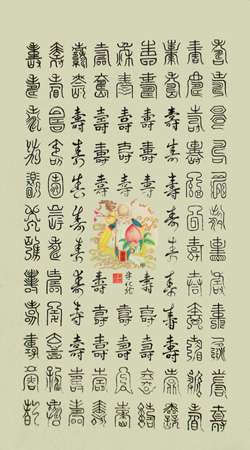 壽壽壽壽壽壽壽壽壽壽壽壽
壽壽壽壽壽壽壽壽壽壽壽壽
壽壽壽壽壽壽壽壽壽壽壽壽
壽壽壽壽壽壽壽壽壽壽
壽壽壽壽壽壽壽壽壽
壽壽壽壽壽壽壽壽壽
壽壽壽壽壽壽壽壽壽壽壽壽
壽壽壽壽壽壽壽壽壽壽壽壽
壽壽壽壽壽壽壽壽壽壽壽壽